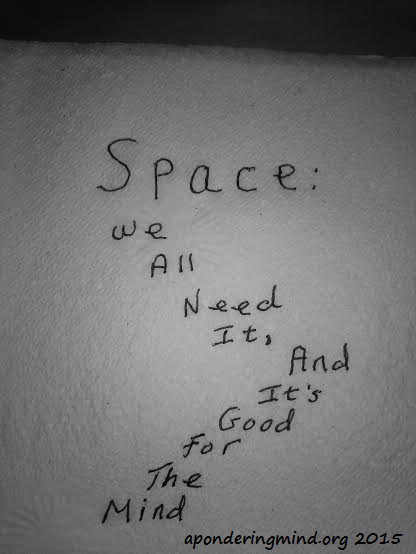 Space:
We
All
Need
It,
And
It's
Good
For
The
Mind
aponderingmind.org 2015